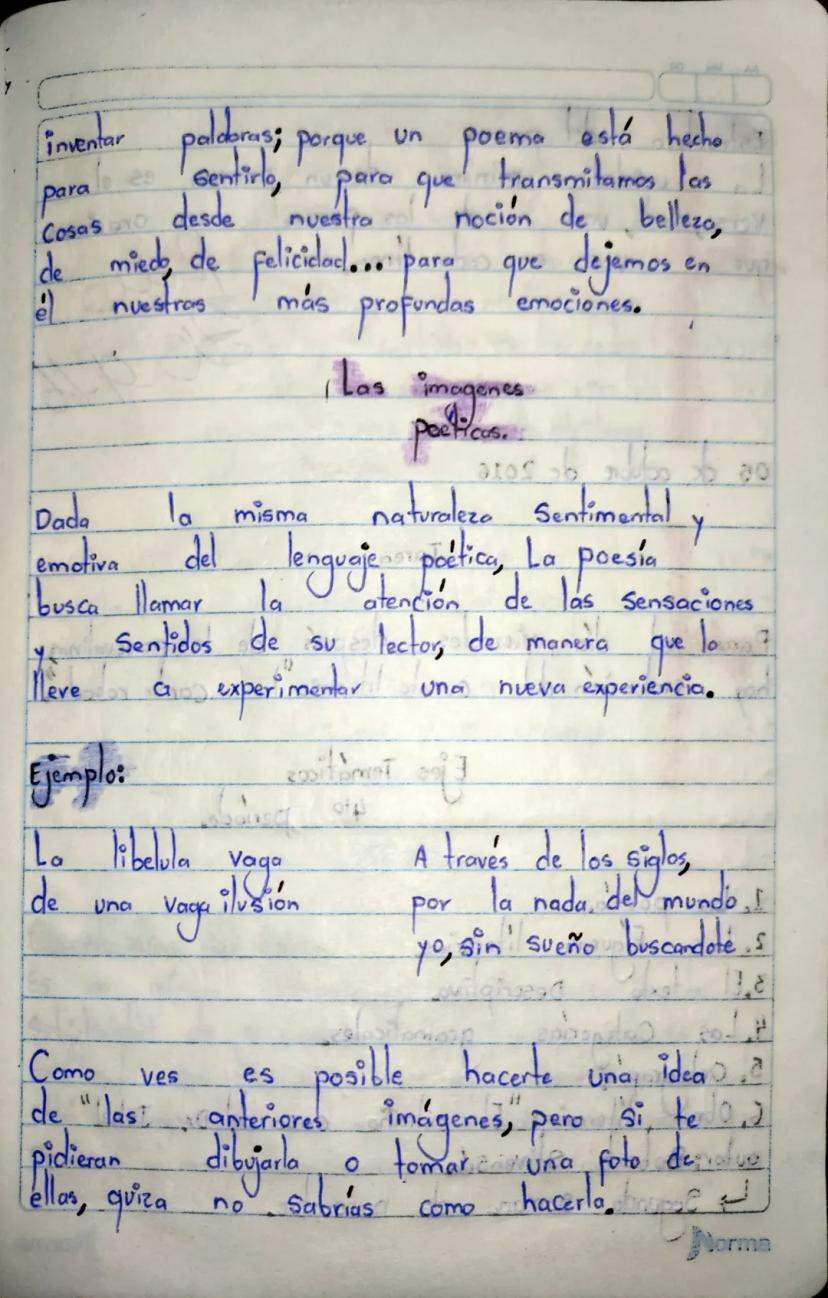 inventar palabras; porque un poema está hecho
para sentirlo, para que transmitamos las
cosas desde nuestra noción de belleza,
de miedo, de felicidad... para que dejemos en
él nuestras más profundas emociones.
Las imagenes
poeticas.
Dada la misma naturaleza sentimental y
emotiva del lenguaje poética, La poesía
busca llamar la atención de las sensaciones
y sentidos de su lector, de manera que lo
lleve a "experimentar una nueva experiencia.
Ejemplo:
La libelula vaga
de una vaga ilusión
A través de los siglos,
por la nada del mundo,
yo, sin sueño buscandote.
Como ves es posible hacerte una idea
de "las anteriores imágenes," pero si te
pidieran dibujarla o tomar una foto de
ellas, quiza no sabrías como hacerla.
Norma